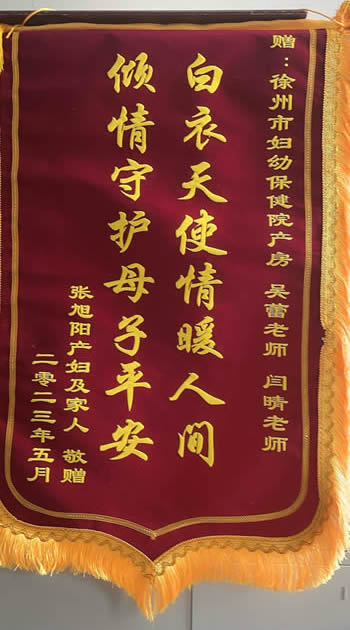 赠：徐州市妇幼保健院产房 吴蕾老师 闫晴老师
白衣天使情暖人间
倾情守护母子平安
张旭阳产妇及家人 敬赠
二零二三年五月